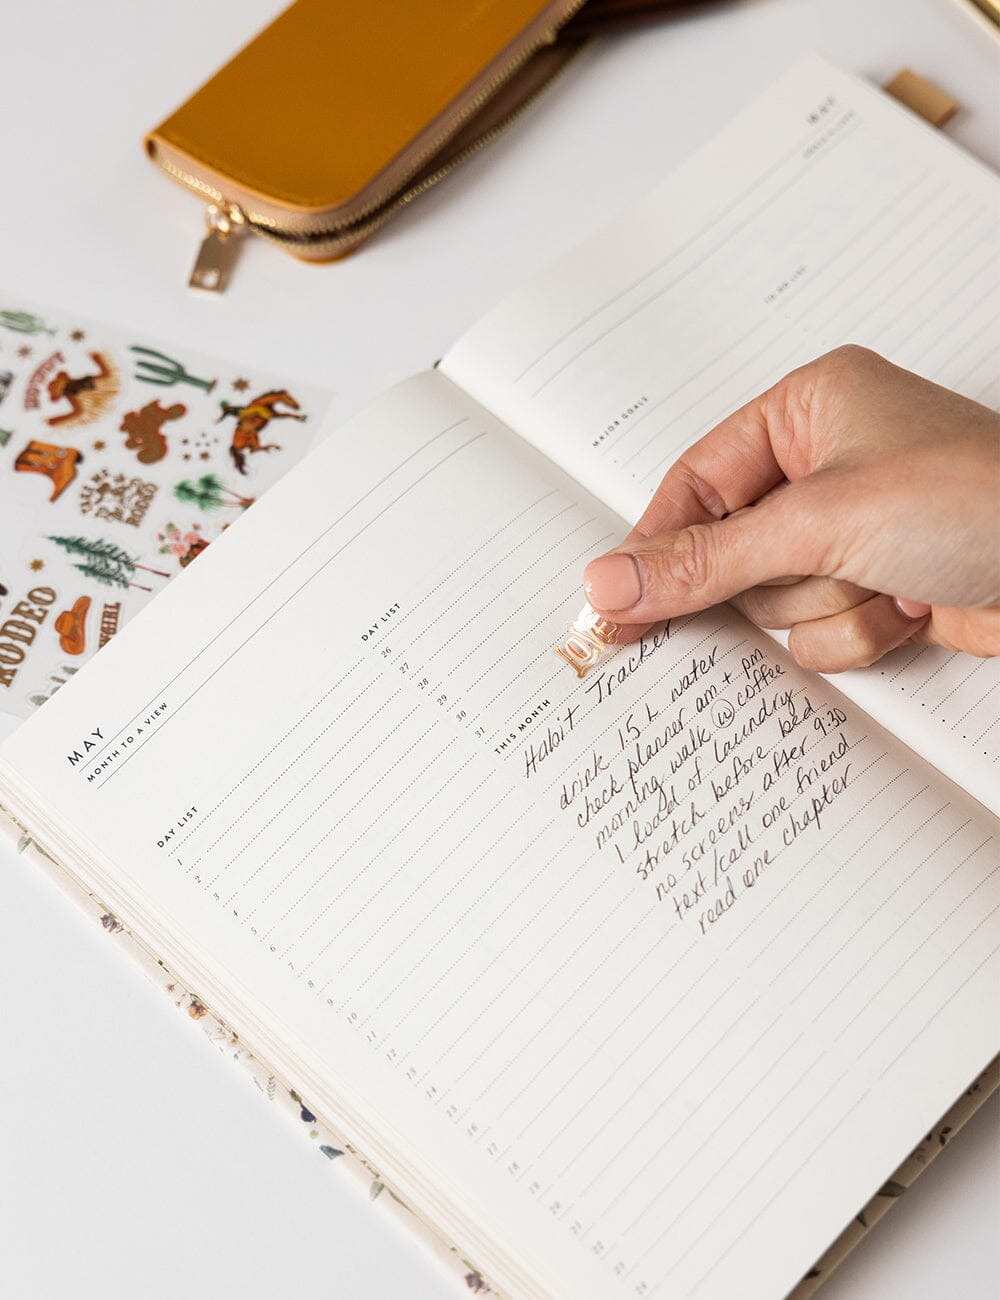 MAY
MONTH TO A VIEW
DAY LIST
1
2
3
4
5
6
7
8
9
10
11
12
13
14
15
16
17
18
19
20
21
22
23
24
DAY LIST
26
27
28
29
30
31
THIS MONTH
Habit Tracker
drink 1.5 L water
check planner am + pm
morning walk w coffee
1 load of laundry
stretch before bed
no screens after 9:30
text/call one friend
read one chapter
MAY
TO DO LIST
MAJOR GOALS
RODEO
COWGIRL
RODEO